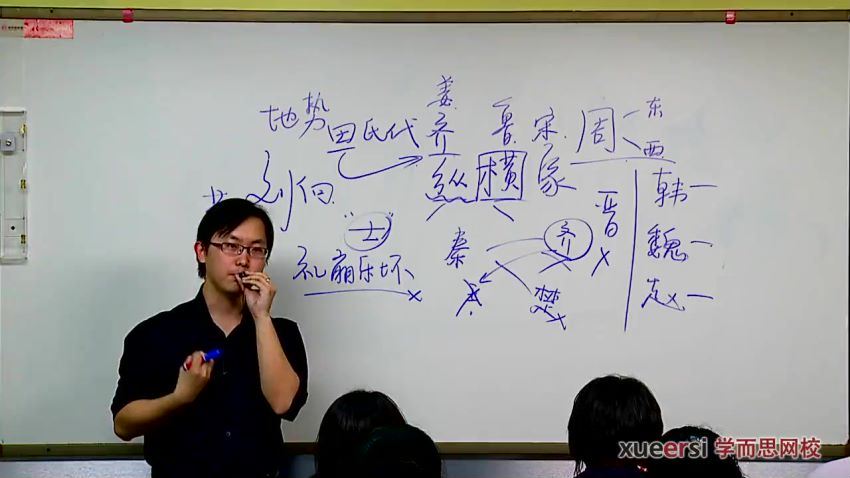 姜
地势 田氏代齐 鲁 宋 周 东
西
刘向 纵横家
韩一
"士" 秦 齐 晋 魏一
礼崩乐坏 楚 赵一
xueersi 学而思网校